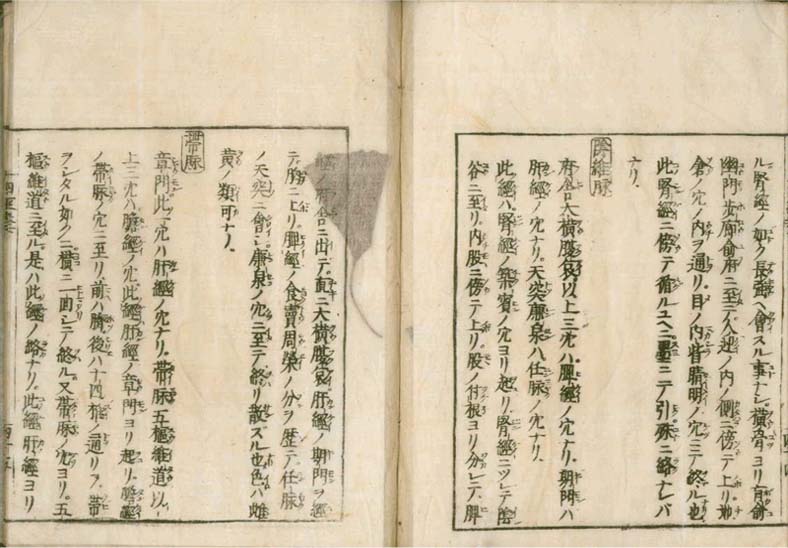 ル腎經ノ如ク長強ヘ會スル事ナシ橫骨ヨリ肓俞
幽門歩廊俞府ニ至テ人迎ノ内ノ側ニ傍テ上リ地
倉ノ穴ノ内ヲ通リ目ノ内眥睛明ノ穴ニテ終ル也
此腎經ニ傍テ循ルユヘニ墨ニテ引殊ニ絡ナレバ
ナリ
陰維脉
府舍大橫腹哀以上三穴ハ脾經ノ穴ナリ期門ハ
肝經ノ穴ナリ天突廉泉ハ任脉ノ穴ナリ
此經ハ腎經ノ築賓ノ穴ヨリ起リ腎經ニツレテ陰
谷ニ至リ内股ニ傍テ上リ股ノ付根ヨリ分レテ脾
府舍ニ出テ直ニ大橫腹哀肝經ノ期門ヲ經
テ胸ニ上リ脾經ノ食竇周榮ノ分ヲ歴テ任脉
ノ天突ニ會シ廉泉ノ穴ニ至テ終リ散ズル也色ハ雌
黄ノ類可ナリ
帶脉
章門此穴ハ肝經ノ穴ナリ帶脉五樞維道以
上三穴ハ膽經ノ穴此經肝經ノ章門ヨリ起リ膽經
ノ帶脉ノ穴ニ至リ前ハ臍後ハ十四椎ノ通リヲ帶
ヲシタル如クニ橫ニ一囘シテ終ル又帶脉ノ穴ヨリ五
樞維道ニ至ル是ハ此經ノ絡ナリ此經肝經ヨリ